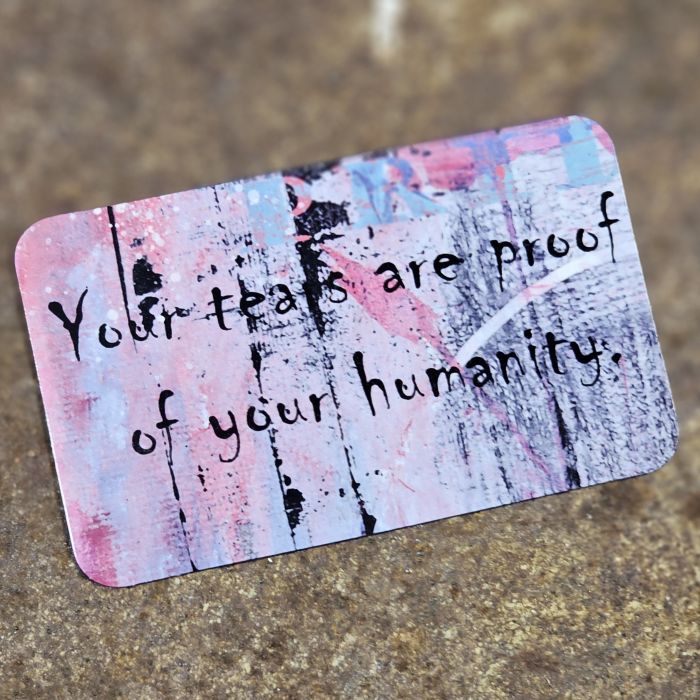 Your tears are proof
of your humanity.